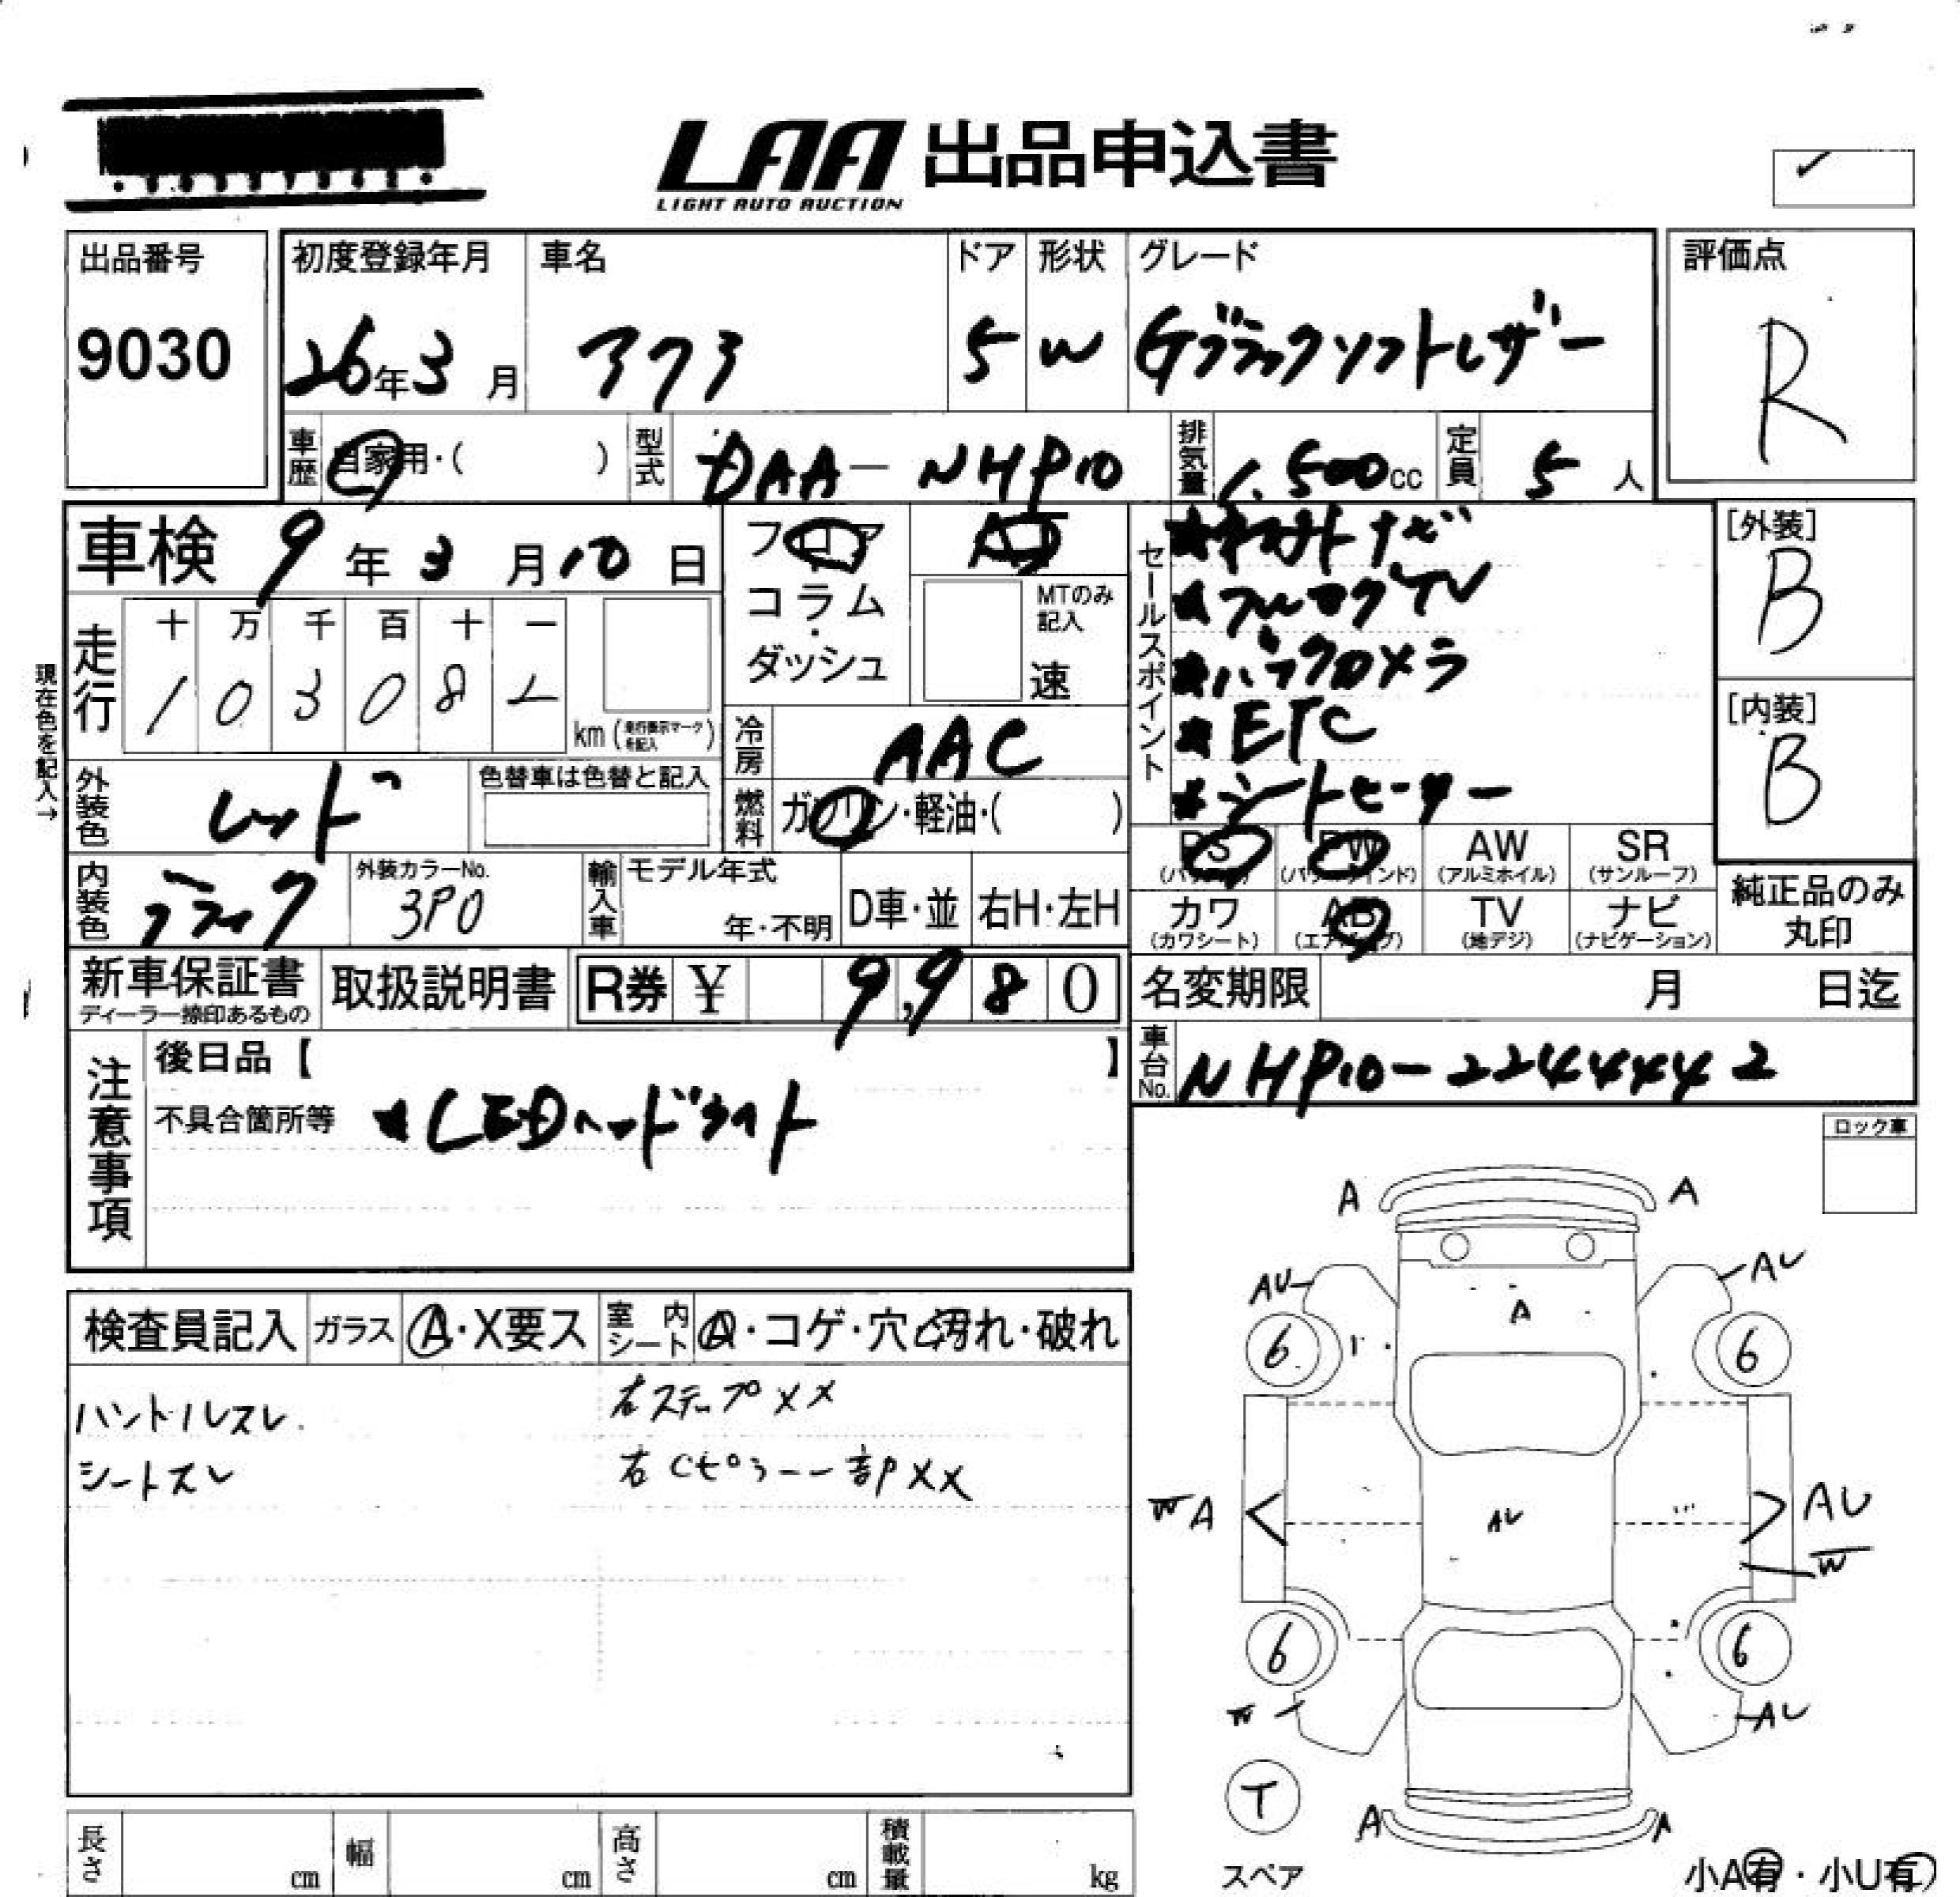 LAA 出品申込書
LIGHT AUTO AUCTION
出品番号
9030
初度登録年月
26年3月
車名
アクア
ドア
5
形状
W
グレード
Gブラックソフトレザー
評価点
R
車歴 自家用・( )
型式 DAA-NHP10
排気量 1,500cc
定員 5人
車検 9年3月10日
走行 十 万 千 百 十 一
km(走行表示マークを記入)
現在色を記入→
外装色 レッド
色替車は色替と記入
内装色 ブラック
外装カラーNo.
3P0
フロア
コラム・
ダッシュ
AT
MTのみ記入
速
冷房 AAC
燃料 ガソリン・軽油・( )
輸入車 モデル年式
年・不明
D車・並 右H・左H
セールスポイント
★フルセグTV
★バックカメラ
★ETC
★シートヒーター
[外装]
B
[内装]
B
PS PW AW SR
(パワステ) (パワーウインド) (アルミホイル) (サンルーフ)
カワ AB TV ナビ
(カワシート) (エアバッグ) (地デジ) (ナビゲーション)
純正品のみ
丸印
新車保証書
ディーラー捺印あるもの
取扱説明書
R券 ¥ 9,980
名変期限 月 日迄
車台No. NHP10-2244442
注意事項
後日品【 】
不具合箇所等 ★LEDヘッドライト
ロック車
検査員記入 ガラス A・X要ス 室内シート A・コゲ・穴・汚れ・破れ
ハンドルスレ 右ステップXX
シートスレ 右Cピラー一部XX
A A
AU AU
A
6 6
W A AU AU
W
6 6
W AU
T
スペア
A A
小A有・小U有
長さ cm 幅 cm 高さ cm 積載量 kg